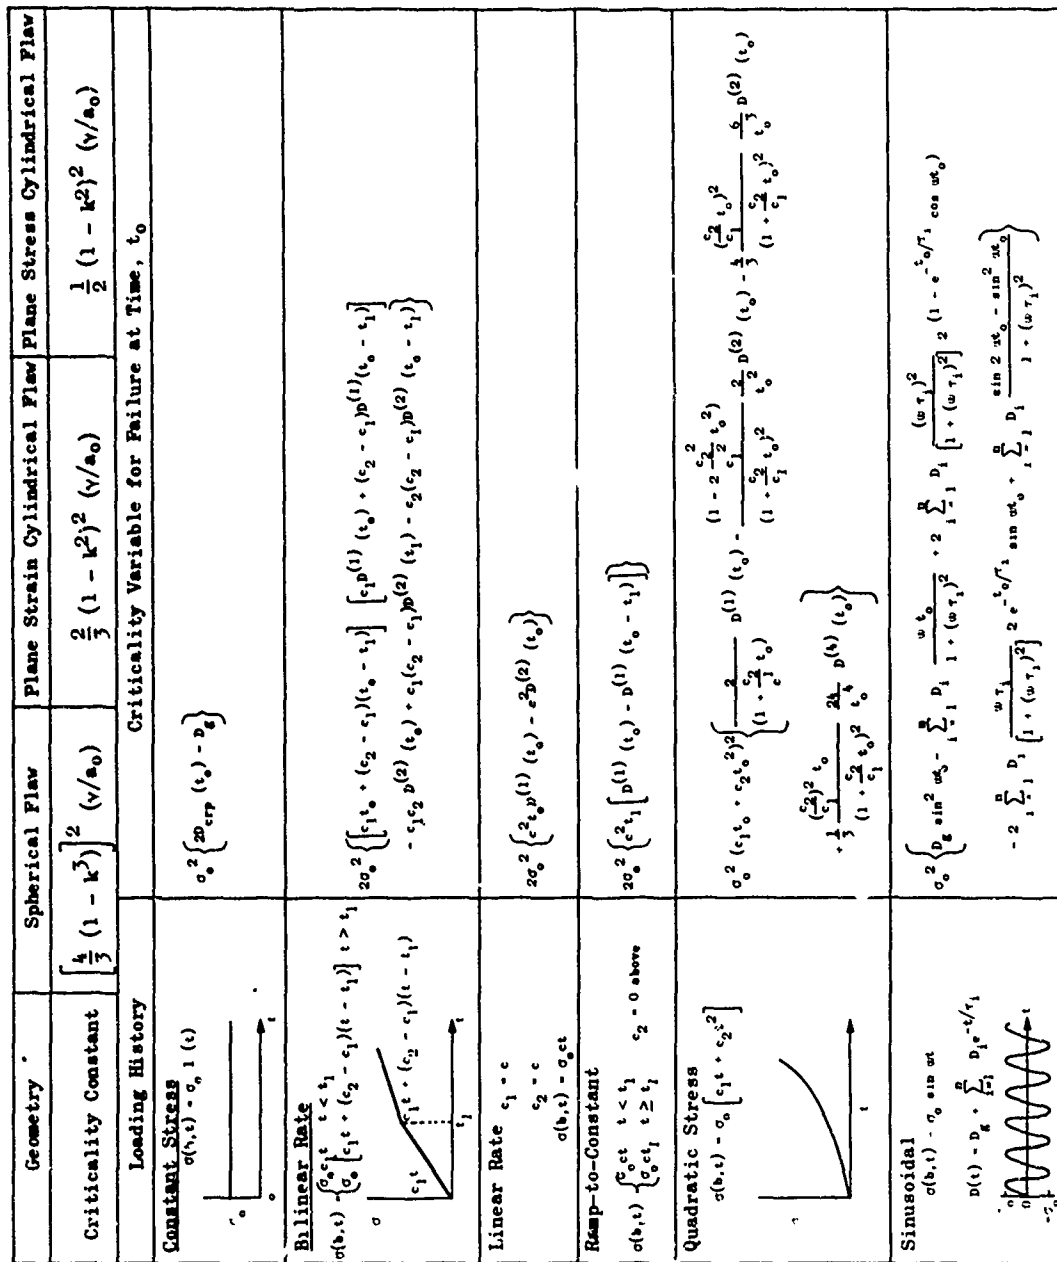 Geometry | Spherical Flaw | Plane Strain Cylindrical Flaw | Plane Stress Cylindrical Flaw
Criticality Constant | [4/3 (1 - k³)]² (γ/a₀) | 2/3 (1 - k²)² (γ/a₀) | 1/2 (1 - k²)² (γ/a₀)
Loading History | Criticality Variable for Failure at Time, t₀
Constant Stress
σ(b,t) = σ₀ 1 (t)
σ₀² {2D_crp (t₀) - D_g}
t
o
Bilinear Rate
σ(b,t) = { σ₀c₁t t < t₁
σ₀ [c₁t + (c₂ - c₁)(t - t₁)] t > t₁
σ
c₁t
c₁t + (c₂ - c₁)(t - t₁)
t₁
t
2σ₀² {[c₁t₀ + (c₂ - c₁)(t₀ - t₁)] [c₁D⁽¹⁾ (t₀) + (c₂ - c₁)D⁽¹⁾(t₀ - t₁)]
- c₁c₂ D⁽²⁾ (t₀) + c₁(c₂ - c₁)D⁽²⁾ (t₁) - c₂(c₂ - c₁)D⁽²⁾ (t₀ - t₁)}
Linear Rate c₁ = c
c₂ = c
σ(b,t) = σ₀ct
2σ₀² {c²t₀D⁽¹⁾ (t₀) - c²D⁽²⁾ (t₀)}
Ramp-to-Constant
σ(b,t) = { σ₀ct t < t₁
σ₀ct₁ t ≥ t₁ c₂ = 0 above
2σ₀² {c²t₁ [D⁽¹⁾ (t₀) - D⁽¹⁾ (t₀ - t₁)]}
Quadratic Stress
σ(b,t) = σ₀ [c₁t + c₂t²]
t
σ₀² (c₁t₀ + c₂t₀²)² { 2/(1 + c₂/c₁ t₀) D⁽¹⁾ (t₀) - (1 - 2 c₂²/c₁² t₀²)/(1 + c₂/c₁ t₀)² 2/t₀² D⁽²⁾ (t₀) - 4/3 (c₂/c₁ t₀)²/(1 + c₂/c₁ t₀)² 6/t₀³ D⁽²⁾ (t₀)
+ 1/3 (c₂/c₁)² t₀/(1 + c₂/c₁ t₀)² 24/t₀⁴ D⁽⁴⁾ (t₀)}
Sinusoidal
σ(b,t) = σ₀ sin ωt
D(t) = D_g + Σⁿᵢ₌₁ Dᵢe^(-t/τᵢ)
σ₀
0
-σ₀
t
σ₀² {D_g sin² ωt₀ - Σⁿᵢ₌₁ Dᵢ ωt₀/(1 + (ωτᵢ)²) + 2 Σⁿᵢ₌₁ Dᵢ (ωτᵢ)²/[1 + (ωτᵢ)²]² (1 - e^(-t₀/τᵢ) cos ωt₀)
- 2 Σⁿᵢ₌₁ Dᵢ ωτᵢ/[1 + (ωτᵢ)²]² e^(-t₀/τᵢ) sin ωt₀ + Σⁿᵢ₌₁ Dᵢ (sin 2 ωt₀ - sin² ωt₀)/(1 + (ωτᵢ)²)}